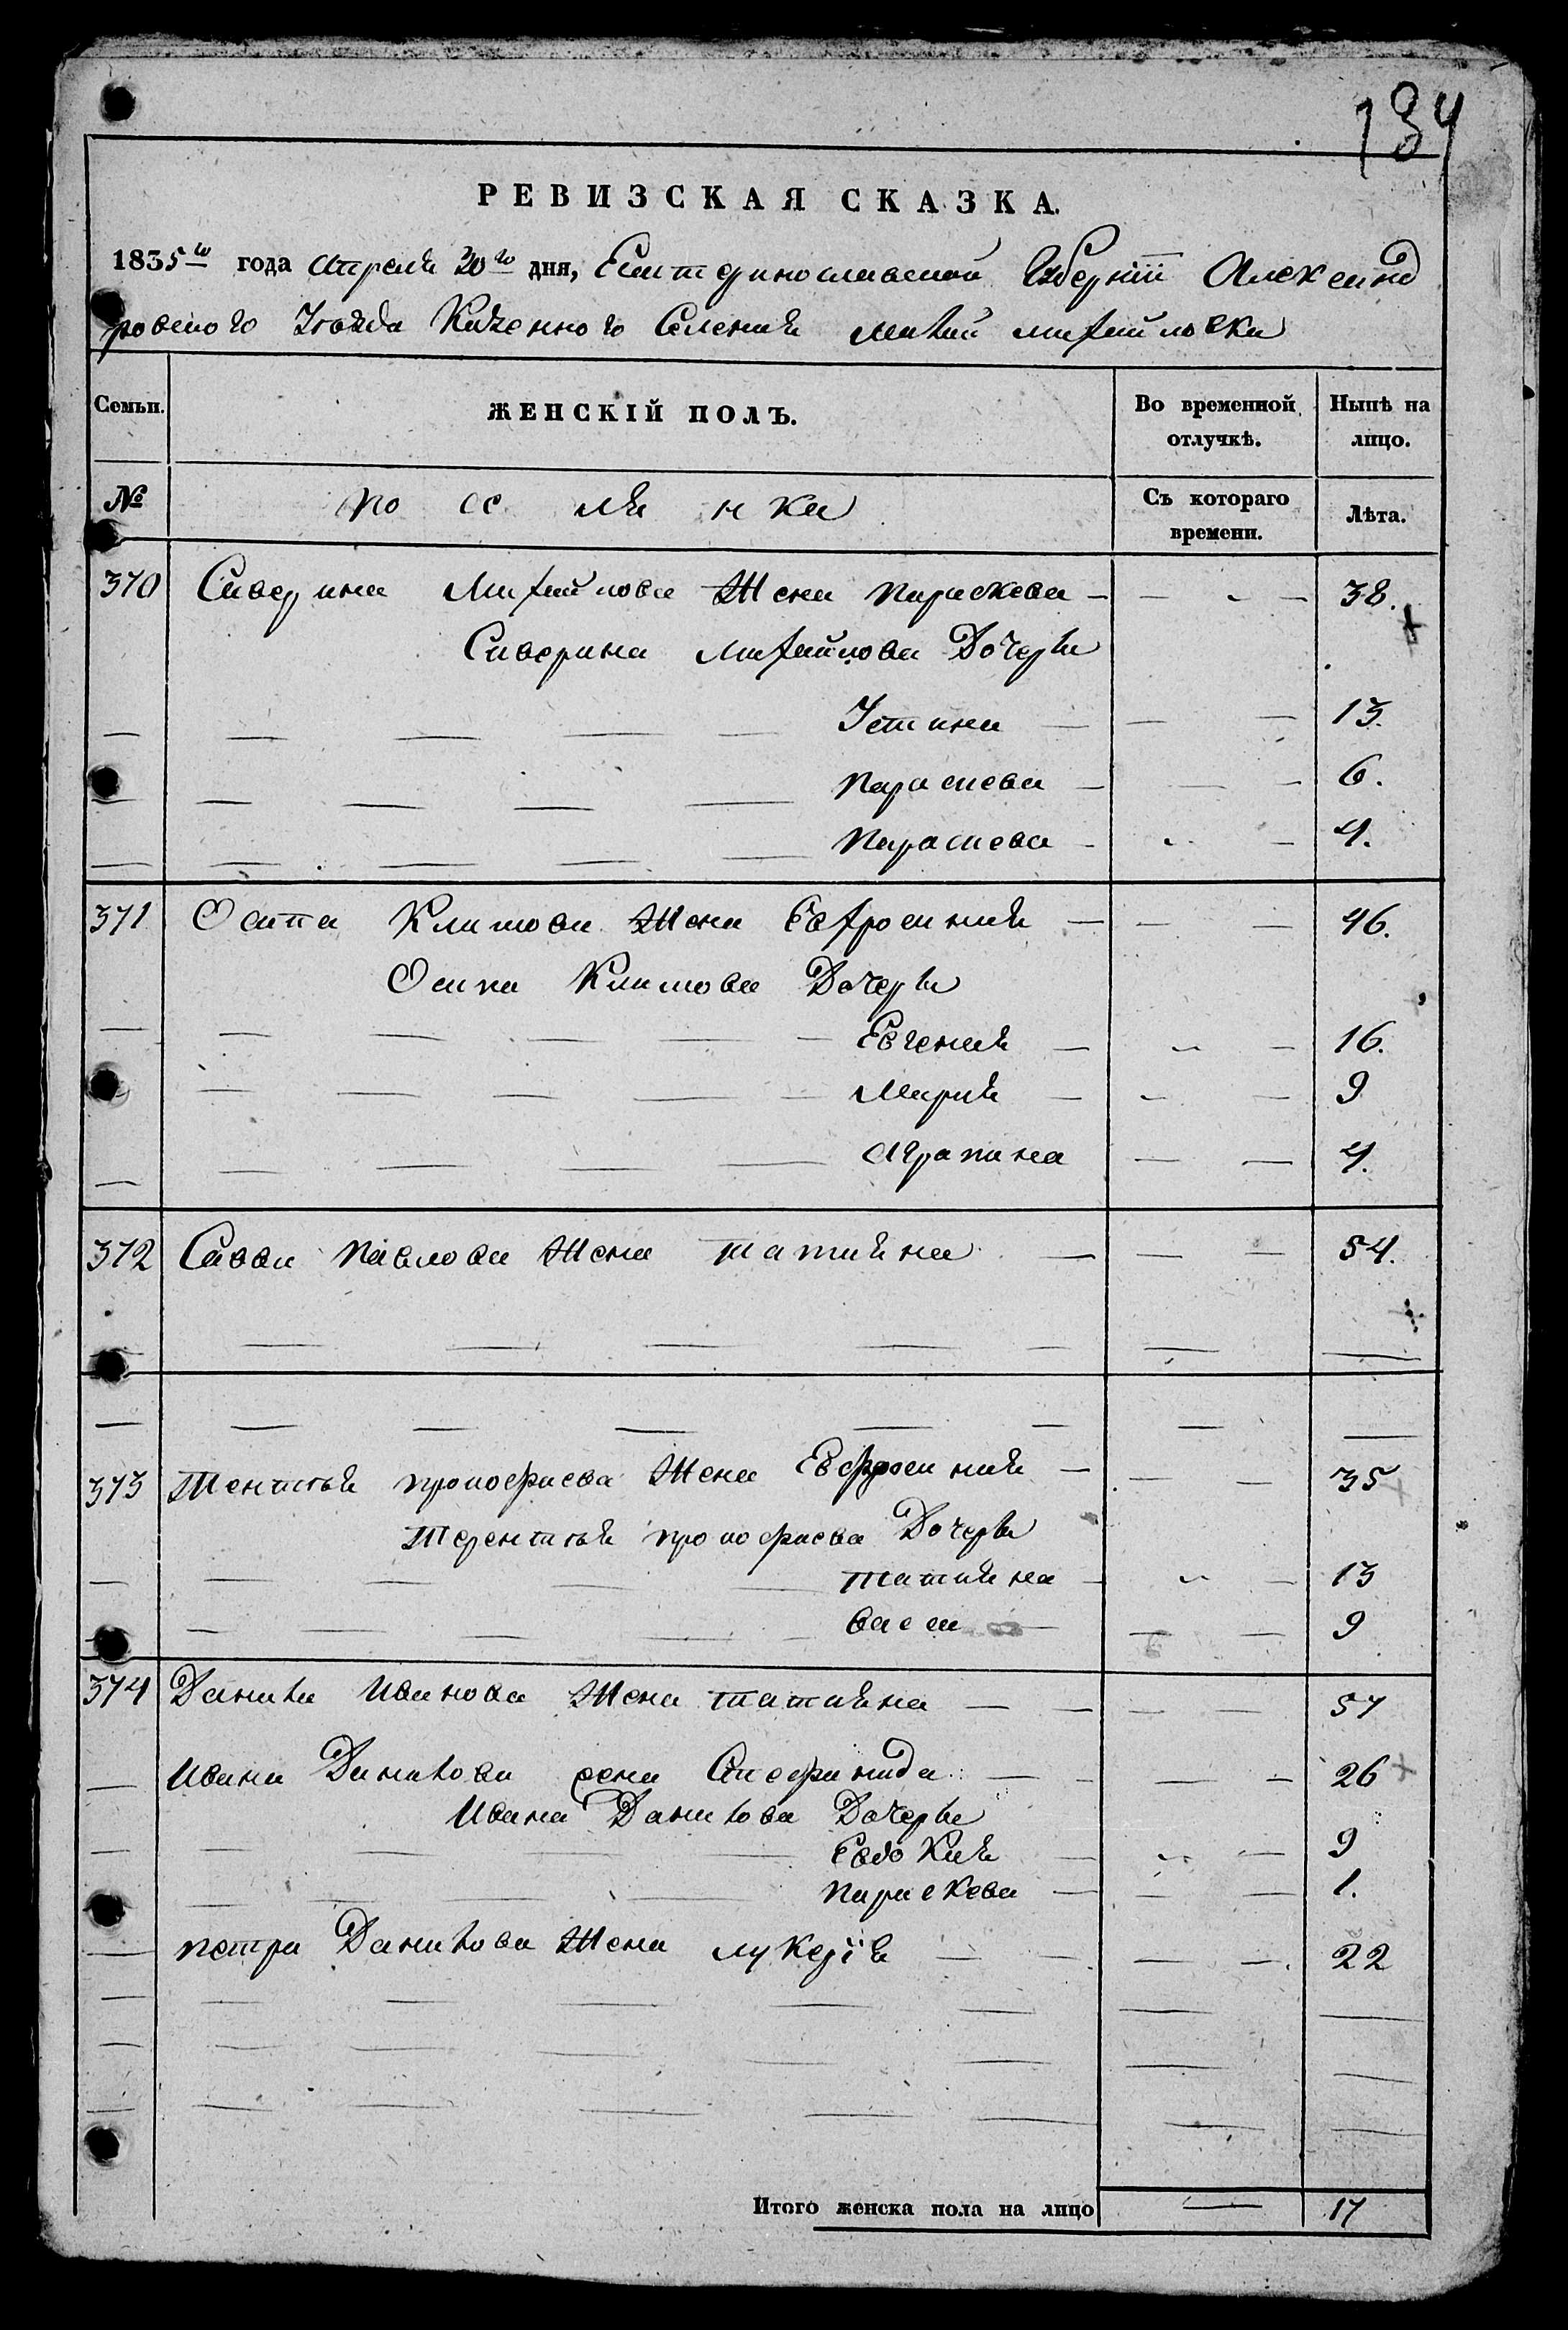 134
РЕВИЗСКАЯ СКАЗКА.
1835го года Апреля 20го дня, Екатеринославской Губернии Александ
ровского Уезда Казенного Селения Малой михайловки
Семьи. ЖЕНСКІЙ ПОЛЪ. Во временной отлучкѣ. Нынѣ на лицо.
№ посе ля нка Съ котораго времени. Лѣта.
370 Савер ина Михайлова Жена параскева — — — 38.
Саверина михайлова Дочерьи
— — — — — Устина — — — 13.
— — — — — параскева — — — 6.
— — — — — параскева — — — 4.
371 Осипа Климова Жена Евфросиния — — — 46.
Осипа Климова Дочерьи
— — — — — Евгения — — — 16.
— — — — Мария — — — 9
— — — — — Аграпина — — 4.
372 Савви павлова Жена татияна — — — 54.
— — — — — — — —
— — — — — — — —
373 прокофиева Жена Евфросиния — — — 35
Терентия прокофиева Дочерьи
— — — — — татияна — — — 13
— — — — — васса — — — 9
374 Данила Иванова Жена татияна — — — — 57
— Ивана Данилова жена — — — — 26
Ивана Данилова Дочерьи
— — — — — Евдокия — — — 9
— — — — параскева — — — 1.
— петра Данилова Жена лукерія — — — — 22
— — — — — — — —
— — — — — — — —
— — — — — — — —
Итого женска пола на лицо — 17